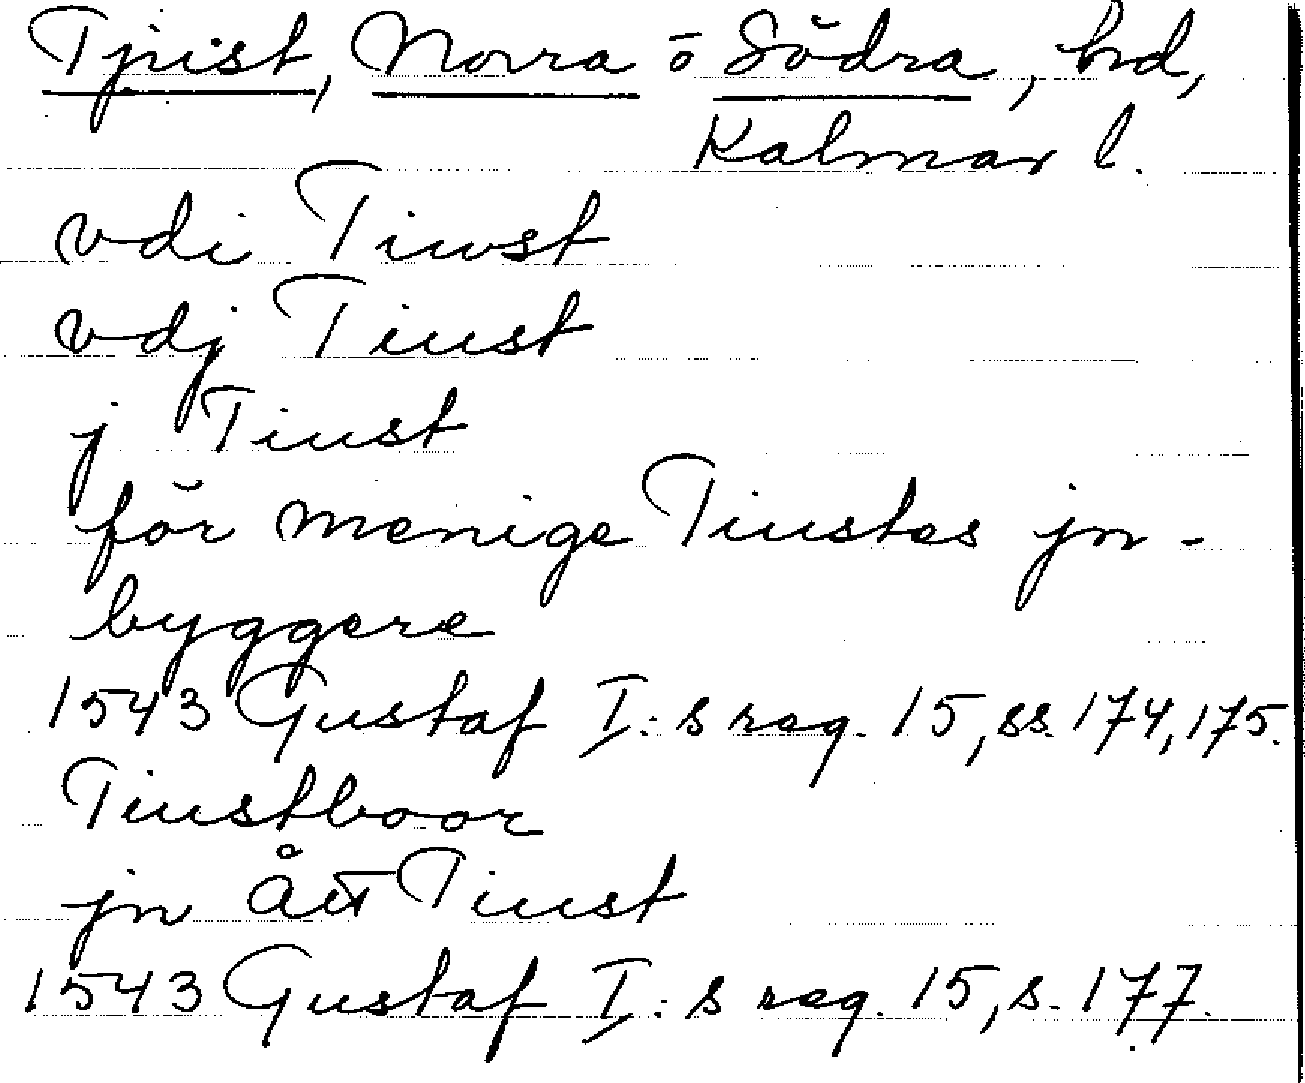 Tjust, Norra o Södra, hd,
Kalmar l.
vdi Tiwst
vdj Tiust
j Tiust
för menige Tiustes jn-
byggere
1543 Gustaf I:s reg. 15, ss. 174, 175.
Tiustboor
jn ått Tiust
1543 Gustaf I:s reg. 15, s. 177.